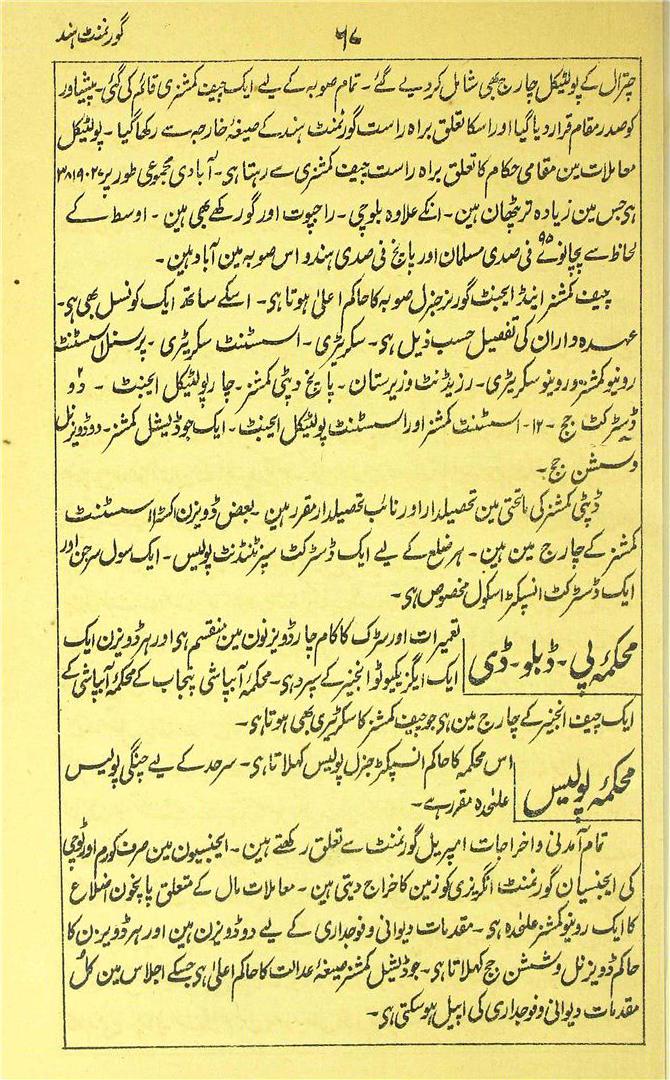 گورنمنٹ ہند
۶۷
چترال کے پولٹیکل چارج بھی شامل کر دیے گئے۔ تمام صوبہ کے لیے ایک چیف کمشنری قائم کی گئی۔ پشاور
کو صدر مقام قرار دیا گیا اور اسکا تعلق براہ راست گورنمنٹ ہند کے صیغۂ خارجہ سے رکھا گیا۔ پولٹیکل
معاملات مین مقامی حکام کا تعلق براہ راست چیف کمشنری سے رہتا ہی۔ آبادی مجموعی طور پر ۳۸۱۹۰۲۷
ہی جس مین زیادہ تر پٹھان ہین۔ انکے علاوہ بلوچی۔ راجپوت اور گورکھے بھی ہین۔ اوسط کے
لحاظ سے پچانوے ۹۵ فی صدی مسلمان اور پانچ فی صدی ہندو اس صوبہ مین آباد ہین۔
چیف کمشنر اینڈ ایجنٹ گورنر جنرل صوبہ کا حاکم اعلیٰ ہوتا ہی۔ اسکے ساتھ ایک کونسل بھی ہی۔
عہدہ داران کی تفصیل حسب ذیل ہی۔ سکریٹری۔ اسسٹنٹ سکریٹری۔ پرسنل اسسٹنٹ
رونیو کمشنر و روینو سکریٹری۔ رزیڈنٹ وزیرستان۔ پانچ ڈپٹی کمشنر۔ چار پولٹیکل ایجنٹ ۔ دو ۲
ڈسٹرکٹ جج ۔ ۱۲۔ اسسٹنٹ کمشنر اور اسسٹنٹ پولٹیکل ایجنٹ۔ ایک جوڈیشل کمشنر۔ دو ڈویزنل
و سشن جج۔
ڈپٹی کمشنر کی ماتحتی مین تحصیلدار اور نائب تحصیلدار مقرر ہین۔ بعض ڈویزن اکسٹرا اسسٹنٹ
کمشنر کے چارج مین ہین۔ ہر ضلع کے لیے ایک ڈسٹرکٹ سپرنٹنڈنٹ پولیس۔ ایک سول سرجن اور
ایک ڈسٹرکٹ انسپکٹر اسکول مخصوص ہی۔
محکمۂ پی۔ ڈبلو۔ ڈی
تعمیرات اور سڑک کا کام چار ڈویزنون مین منقسم ہی اور ہر ڈویزن ایک
ایک ایگزیکیوٹو انجنیر کے سپرد ہی۔ محکمۂ آبپاشی پنجاب کے محکمۂ آبپاشی کے
ایک چیف انجنیر کے چارج مین ہی جو چیف کمشنر کا سکرٹیری بھی ہوتا ہی۔
محکمۂ پولیس
اس محکمہ کا حاکم انسپکٹر جنرل پولیس کہلاتا ہی۔ سرحد کے لیے جنگی پولیس
علیٰحدہ مقرر ہے۔
تمام آمدنی و اخراجات امپیریل گورنمنٹ سے تعلق رکھتے ہین۔ ایجنسیون مین صرف کورم اور ٹوچی
کی ایجنسیان گورنمنٹ انگریزی کو زمین کا خراج دیتی ہین۔ معاملات مال کے متعلق پانچون اضلاع
کا ایک رونیو کمشنر علیٰحدہ ہی۔ مقدمات دیوانی و فوجداری کے لیے دو ڈویزن ہین اور ہر ڈویزن کا
حاکم ڈویزنل و سشن جج کہلاتا ہی۔ جوڈیشل کمشنر صیغۂ عدالت کا حاکم اعلیٰ ہی جسکے اجلاس مین کل
مقدمات دیوانی و فوجداری کی اپیل ہو سکتی ہی۔